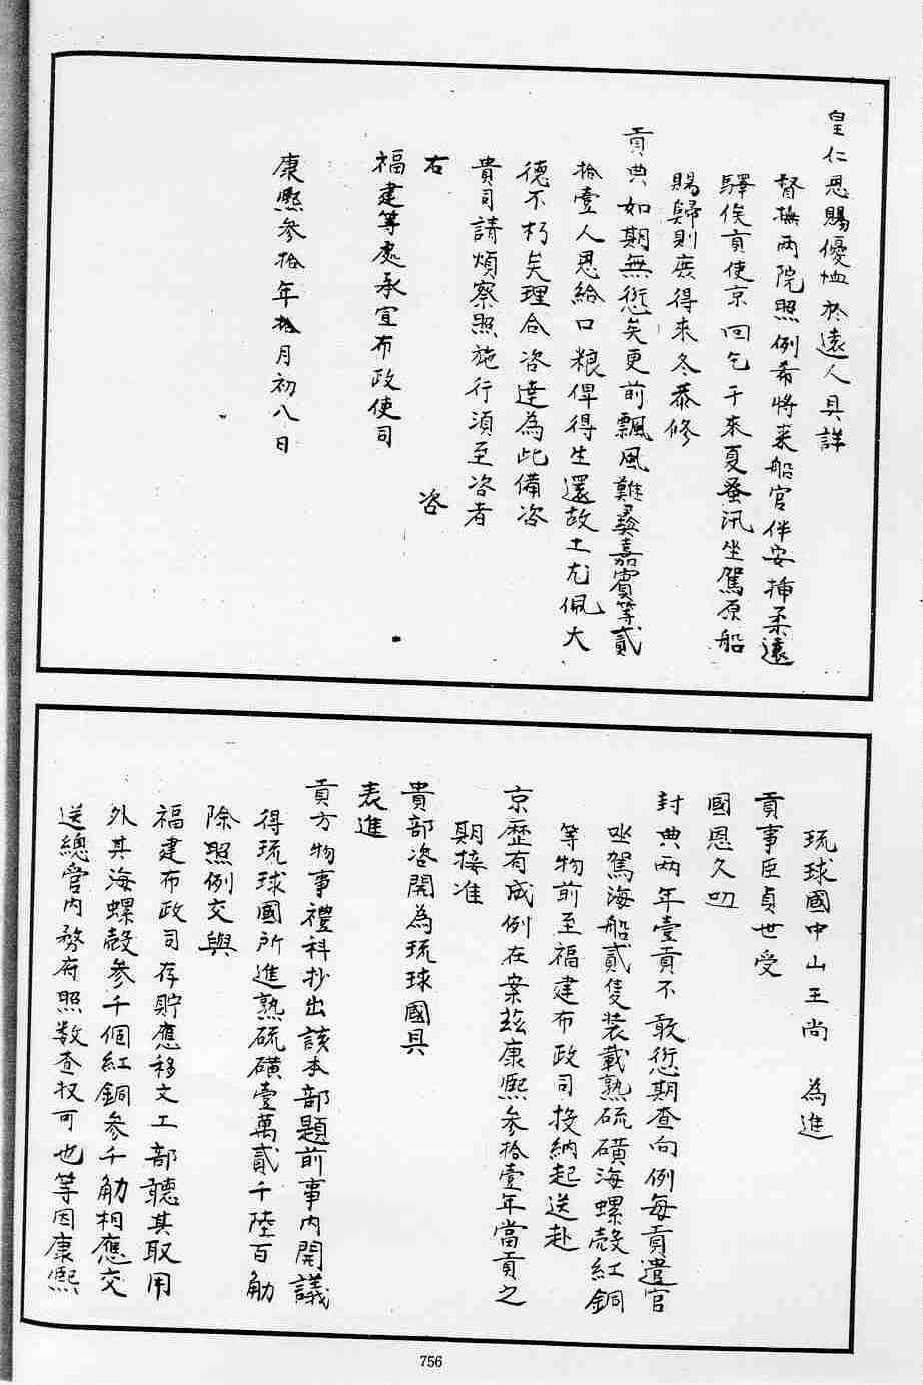 皇仁恩賜優恤於遠人具詳
督撫兩院照例希將來船官伴安揷柔遠
驛俟貢使京回乞于來夏蚤汛坐駕原船
賜歸則庶得來冬恭修
貢典如期無愆矣更前飄風難彝嘉賓等貳
拾壹人恩給口粮俾得生還故土尤佩大
德不朽矣理合咨達為此備咨
貴司請煩察照施行須至咨者
右　咨
福建等處承宣布政使司
康熙參拾年拾月初八日
琉球國中山王尚　為進
貢事臣貞世受
國恩久叨
封典兩年壹貢不敢愆期查向例每貢遣官
坐駕海船貳隻裝載熟硫磺海螺殼紅銅
等物前至福建布政司投納起送赴
京歷有成例在案玆康熙參拾壹年當貢之
期接准
貴部咨開為琉球國具
表進
貢方物事禮科抄出該本部題前事內開議
得琉球國所進熟硫磺壹萬貳千陸百觔
除照例交與
福建布政司存貯應移文工部聽其取用
外其海螺殼參千個紅銅參千觔相應交
送總管內務府照数查收可也等因康熙
756